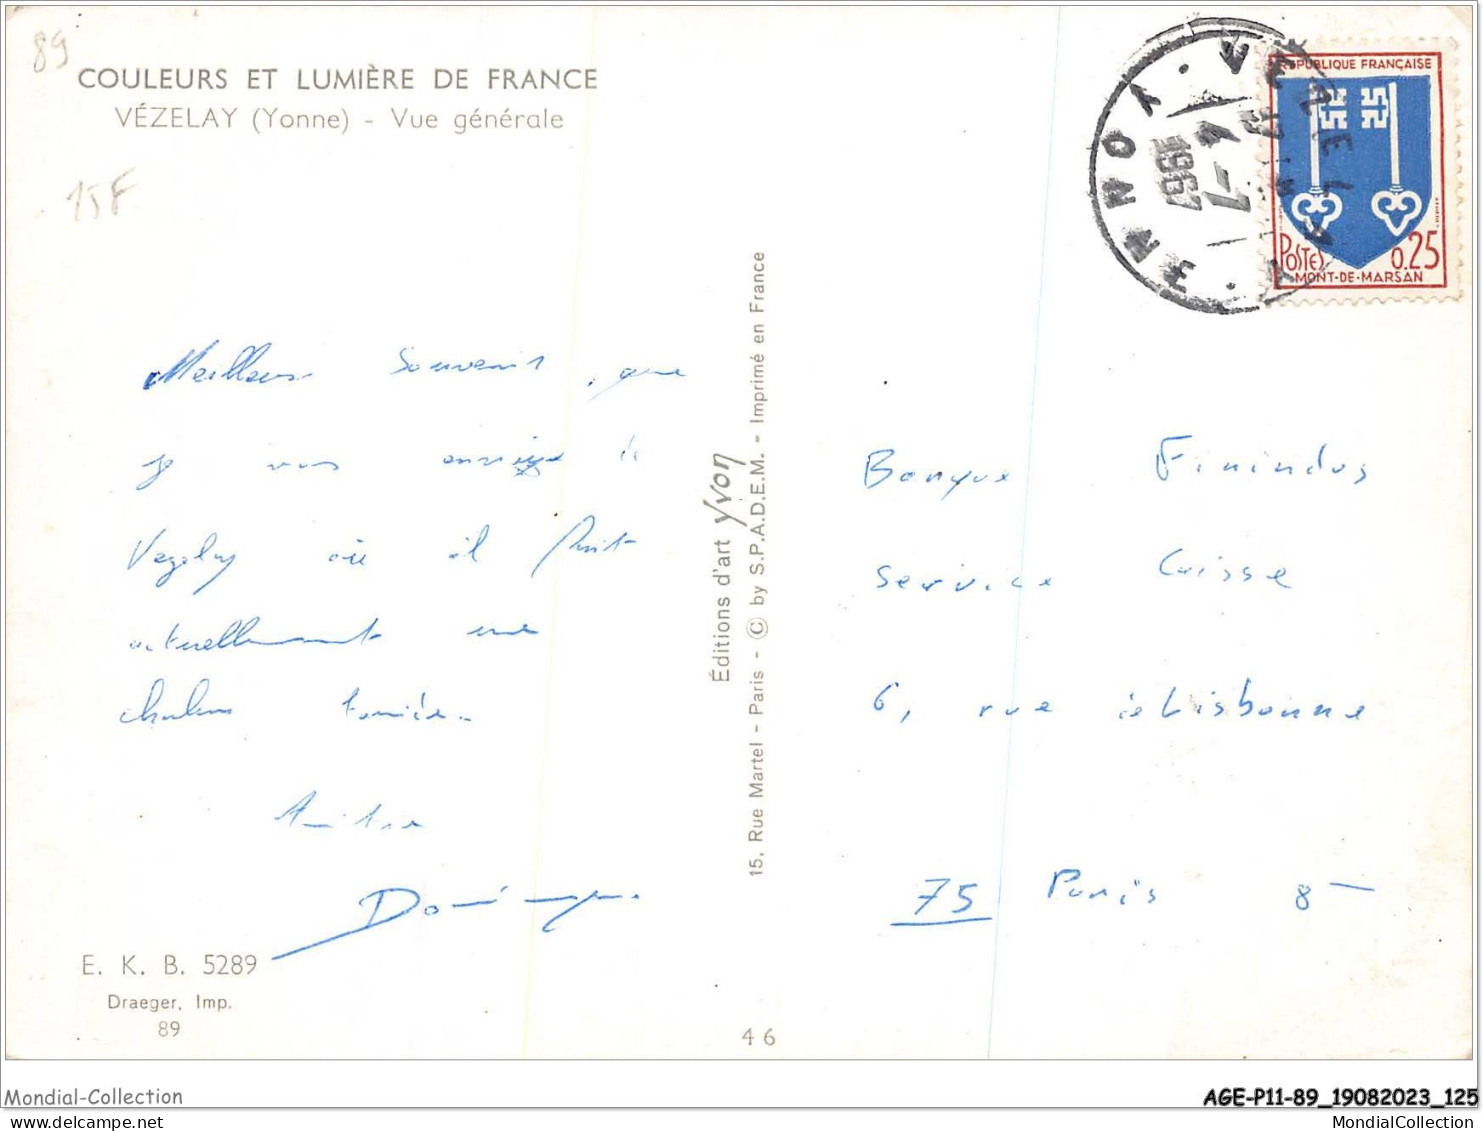 89
COULEURS ET LUMIÈRE DE FRANCE
VÉZELAY (Yonne) - Vue générale
15F
Meilleur souvenir, que
je vous envoye de
Vezelay où il fait
actuellement une
chaleur torride.
Amitiés
Dominique
E. K. B. 5289
Draeger, Imp.
89
46
Éditions d'art Yvon
15, Rue Martel - Paris - © by S.P.A.D.E.M. - Imprimé en France
VEZELAY
YONNE
4-7
1967
RÉPUBLIQUE FRANÇAISE
POSTES 0.25
MONT-DE-MARSAN
Banque Finindus
Service Caisse
6, rue de Lisbonne
75 Paris 8
Mondial-Collection
AGE-P11-89_19082023_125
MondialCollection